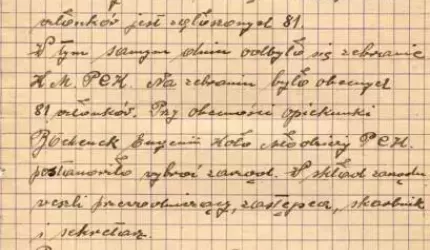 członków jest zgłoszonych 81.
W tym samym dniu odbyło się zebranie
K.M. PCK. Na zebraniu było obecnych
81 członków. Przy obecności opiekunki
Bochenek Eugenii Koło Młodzieży PCK.
postanowiło wybrać zarząd. W skład zarządu
weszli przewodniczący, zastępca, skarbnik
i sekretarz.